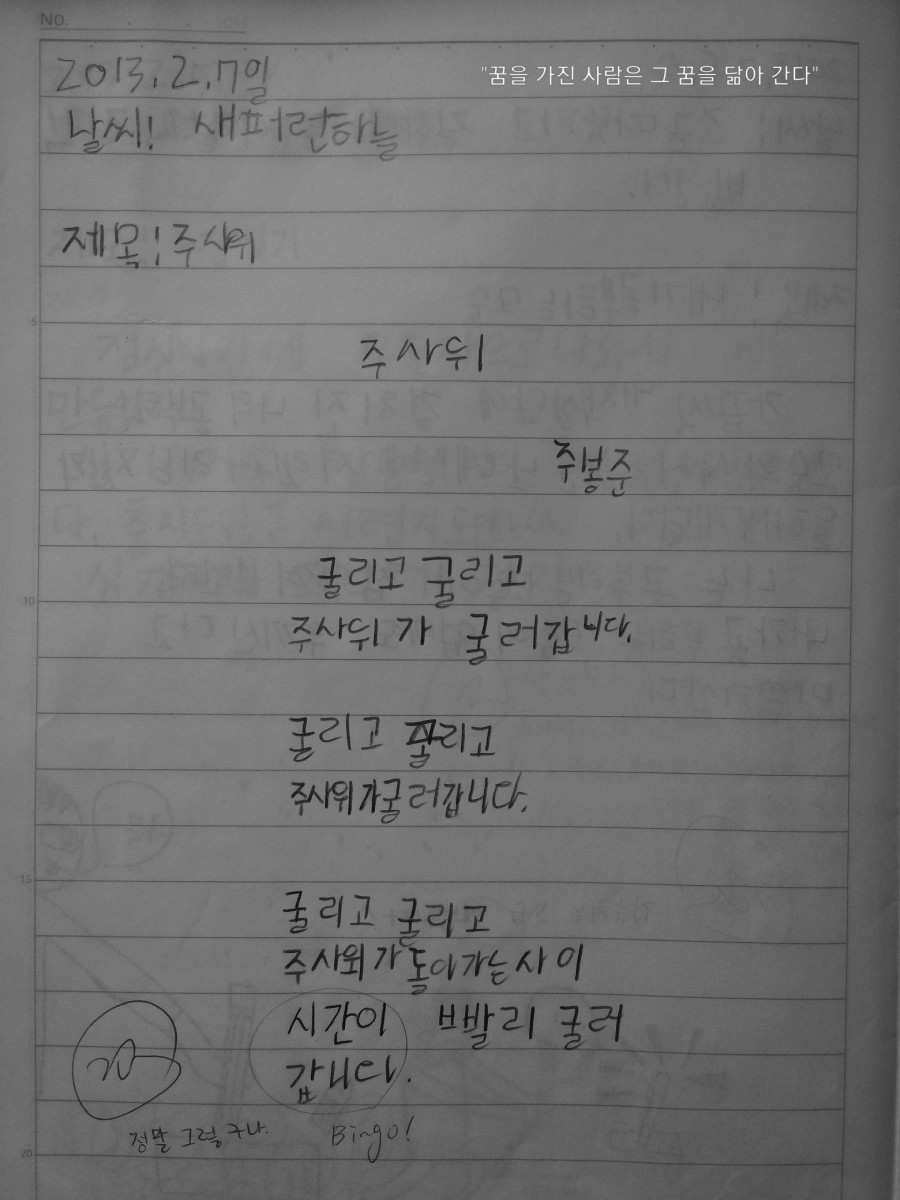 No.
2013.2.7일
"꿈을 가진 사람은 그 꿈을 닮아 간다"
날씨! 새파란하늘
제목:주사위
5
주사위
주봉준
굴리고 굴리고
10
주사위가 굴러갑니다.
굴리고 굴리고
주사위가굴러갑니다.
15
굴리고 굴리고
주사위가돌아가는사이
시간이 빠발리 굴러
갑니다.
정말 그렇구나. Bingo!
20